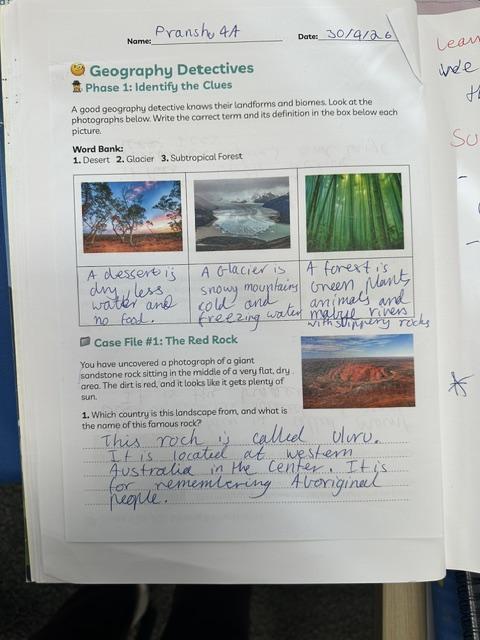 Name: Pranshu 4A Date: 30/4/26
Geography Detectives
Phase 1: Identify the Clues
A good geography detective knows their landforms and biomes. Look at the
photographs below. Write the correct term and its definition in the box below each
picture.
Word Bank:
1. Desert 2. Glacier 3. Subtropical Forest
A dessert is
dry, less
water and
no food.
A Glacier is
snowy mountains
cold and
freezing water
A forest is
Green, plants
animals and
mabye rivers
with slippery rocks
Case File #1: The Red Rock
You have uncovered a photograph of a giant
sandstone rock sitting in the middle of a very flat, dry
area. The dirt is red, and it looks like it gets plenty of
sun.
1. Which country is this landscape from, and what is
the name of this famous rock?
This roch is called Uluru.
It is located at western
Australia in the Center. It is
for remembering Aboriginal
people.